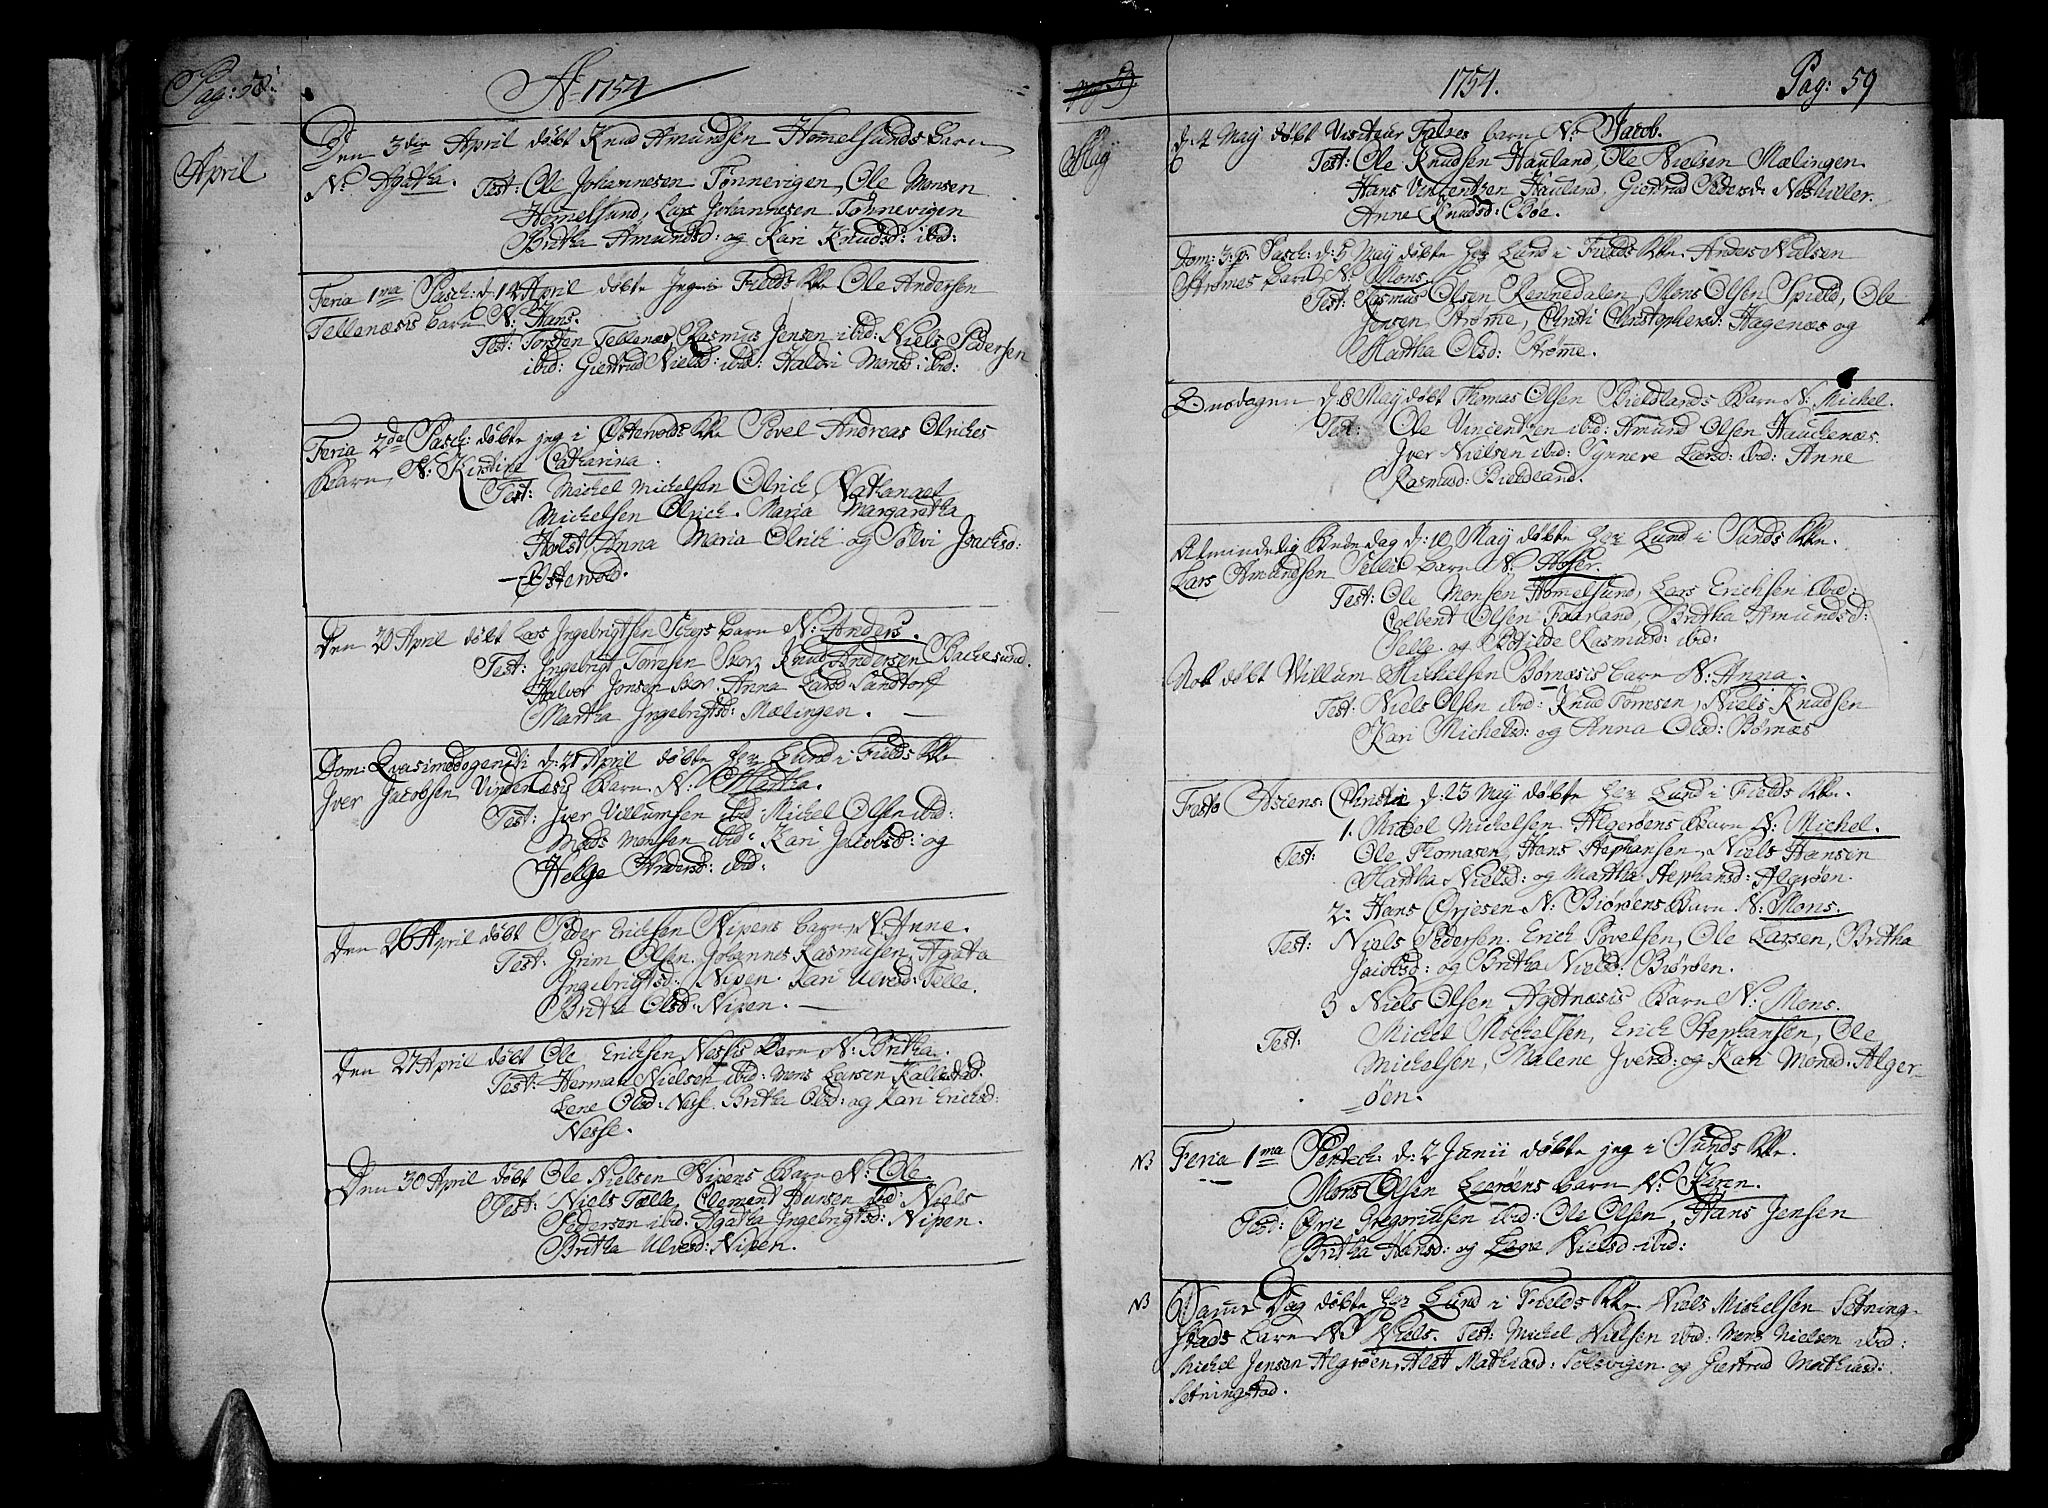 Pag: 58.
Ao 1754
April
Den 3die April døbt Knud Amundsen Hommelsunds barn
N: Agatha. Test: Ole Johannesen Tønnevigen, Ole Monsen
Hommelsund, Lars Johannesen Tønnevigen
Britha Amundsd: og Kari Knudsd: ibid:
Feria 1ma Pasch: d: 14 April døbte Jeg i Fields Kke Ole Andersen
Tellenæsis barn N: Hans.
Test: Torsten Tellenæs, Rasmus Jensen ibid: Niels Pedersen
ibid: Giertrud Nielsd: ibid: Haldri Monsd: ibid:
Feria 2da Pasch: døbte jeg i Østervolds Kke Povel Andreas Olriches
Barn N: Kirstine Catharina.
Test: Michel Michelsen Olrich, Nathanael
Michelsen Olrich. Maria Margaretha
Holst, Anna Maria Olrich og Sølvi Isachsd:
Østervold.
Den 20 April døbt Lars Ingebrigtsen Schors barn N: Anders.
Test: Ingebrigt Tørresen Skor, Knud Andersen Bachesund.
Halvor Jonsen Skor. Anna Larsd: Sandtorf
Martha Ingebrigtsd: Mælingen.
Dom: Qvasimodogeniti d: 21 April døbte Her Lund i Fields Kke
Iver Jacobsen Vindenæsis Barn N: Martha.
Test: Iver Villumsen ibid: Michel Olsen ibid:
Mads Monsen ibid: Kari Jacobsd: og
Helge Andersd: ibid:
Den 26 April døbt Peder Erichsen Nipens barn, N: Anne.
Test: Grim Olsen, Johannes Rasmusen, Agata
Ingebrigtsd: Nipen. Kari Ulvesd: Telle.
Britha Olsd: Nipen.
Den 27 April døbt Ole Erichsen Nessis Barn N: Britha.
Test: Herman Nielsen ibid: Mons Larsen Kallestad.
Lene Olsd: Nesse. Britha Olsd: og Kari Erichsd:
Nesse.
Den 30 April døbt Ole Nielsen Nipens Barn N: Ole.
Test: Niels Tælle, Clement Hansen ibid: Niels
Pedersen ibid. Agatha Ingebrigtsd: Nipen.
Britha Ulvesd: Nipen.
1754.
Pag: 59
May
d: 4 May døbt Visiteur Falses barn N: Jacob.
Test: Ole Knudsen Hauland, Ole Nielsen Mælingen.
Hans Vincentzen Hauland, Giertrud Pedersd: Neshiller.
Anne Knudsd: Bøe.
Dom: 3 p: Pasch: d: 5 May døbte Her Lund i Fields Kke. Anders Nielsen
Strømes barn, N: Mons.
Test: Rasmus Olsen Rennedalen, Mons Olsen Spield, Ole
Jensen Strøme, Christi Christophersd: Hagenæs og
Martha Olsd: Strøme.
Onsdagen d: 8 May døbt Thomas Olsen Bieldlands Barn N: Michel.
Test: Ole Vincentzen ibid: Amund Olsen Hauchenæs.
Iver Nielsen ibid: Synneve Larsd: ibid: Anne
Rasmusd: Bieldland.
Almindelig Bede dag d: 10 May døbte Her Lund i Sunds Kke.
Lars Amundsen Tellis barn N:
Test: Ole Monsen Hommelsund, Lars Erichsen ibid:
Colbent Olsen Faarland, Britha Amundsd:
Telle og Botilde Rasmusd: ibid:
Nok døbt Villum Michelsen Børnæsis barn N: Anna.
Test: Niels Olsen ibid: Knud Tomsen, Niels Knudsen
Kari Michelsd: og Anna Olsd: Børnæs
Festo Ascens: Christi d: 23 May døbte Her Lund i Fields Kke.
1. Michel Michelsen Algerøens Barn N: Michel.
Test: Ole Thomasen, Hans Stephansen, Niels Hansen
Martha Nielsd: og Martha Stephansd: Algrøen.
2: Hans Ørjesen N: Biørøens Barn N: Mons.
Test: Niels Pedersen. Erich Povelsen, Ole Larsen, Britha
Jacobsd: og Britha Nielsd: Biørøen.
3 Niels Olsen Agotnæsis Barn N: Mons.
Test: Michel Michelsen, Erich Stephansen, Ole
Michelsen, Malene Iversd: og Kari Monsd: Alger-
øen.
NB Feria 1ma Pentech: d: 2 Junii døbte jeg i Sunds Kke.
Mons Olsen Leerøens barn N: Karen.
Test: Ørje Gregoriusen ibid: Ole Olsen, Hans Jensen
Britha Hansd: og Lene Nielsd ibid:
NB Samme Dag døbte Her Lund i Fields Kke. Niels Michelsen Sotning-
stads barn N: Niels. Test: Michel Nielsen ibid: Mons Nielsen ibid:
Michel Jensen Algrøen, Alet Mathiasd: Solsvigen og Giertrud Mathiasd:
Sotningstad.